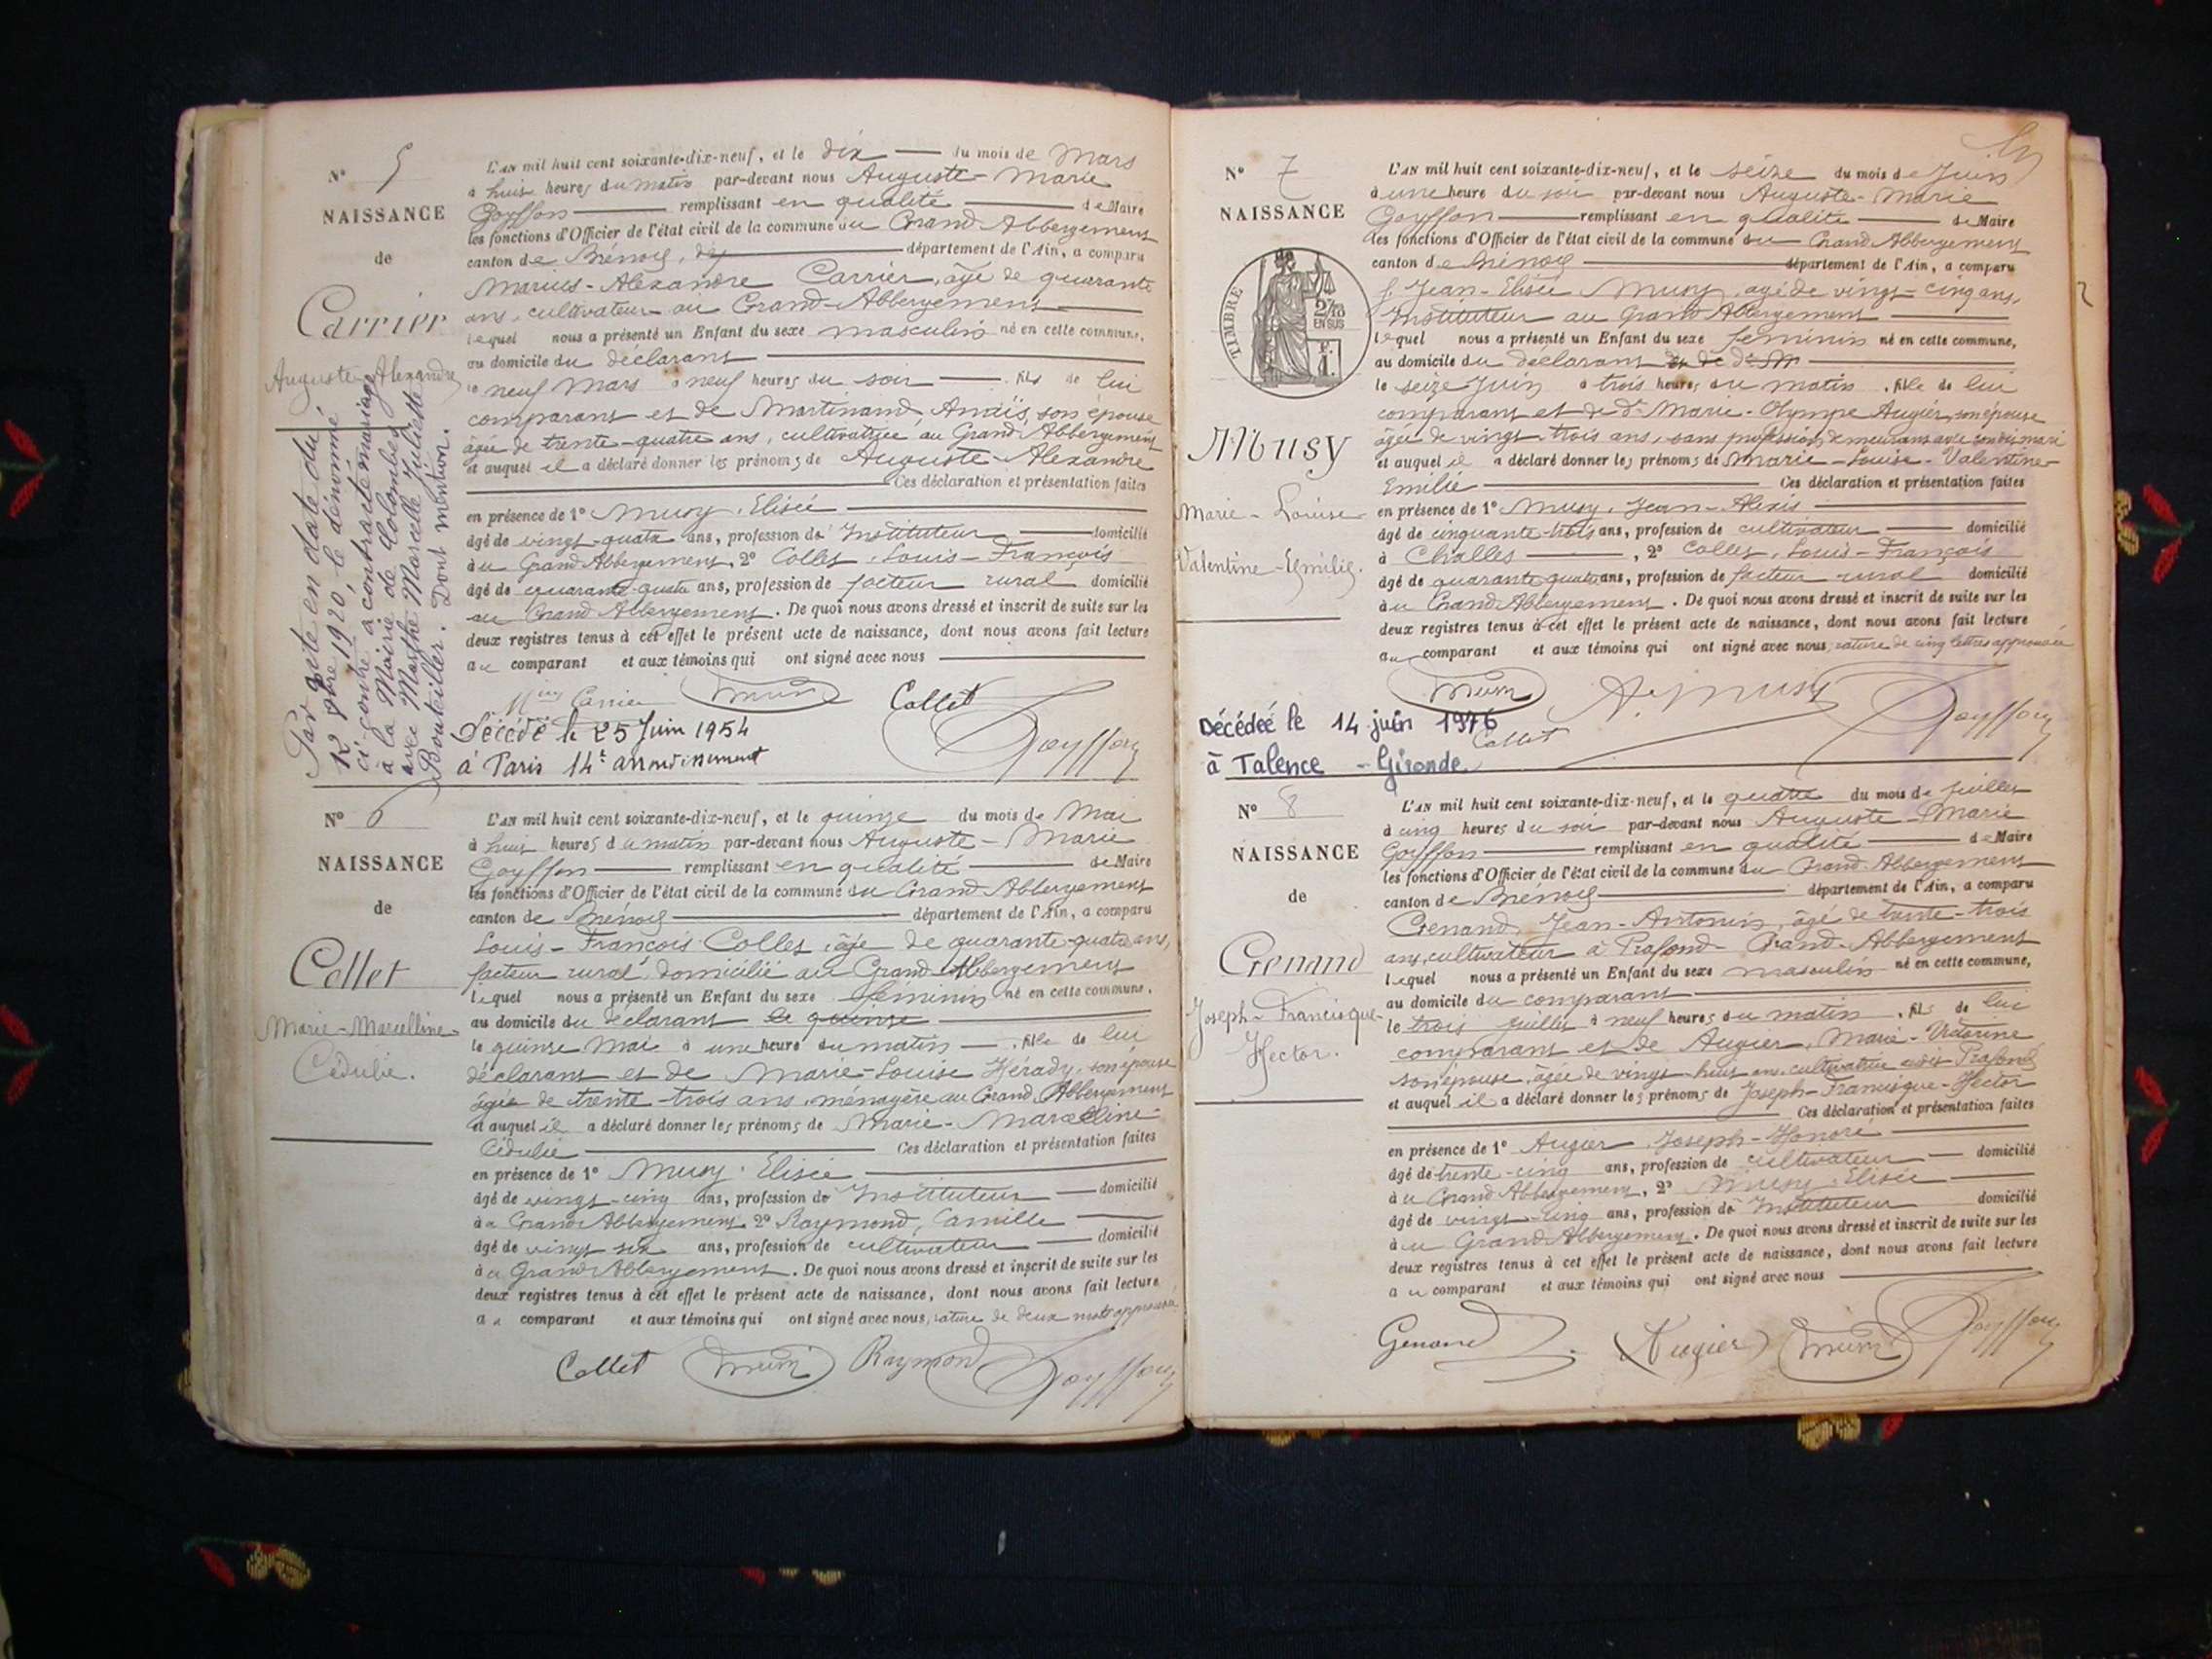 N° 5
NAISSANCE
de
Carrier
Auguste-Alexandre
Par acte en date du
12 9bre 1920, le dénommé
ci-contre a contracté mariage
à la Mairie de Colombes
avec Marthe Marcelle Juliette
Bouteiller. Dont mention.
L'AN mil huit cent soixante-dix-neuf, et le dix du mois de Mars
à huit heures du matin par-devant nous Auguste-Marie
Goyffon remplissant en qualité de Maire
les fonctions d'Officier de l'état civil de la commune du Grand-Abbergement
canton de Brénod, département de l'Ain, a comparu
Marius-Alexandre Carrier, âgé de quarante
ans, cultivateur au Grand-Abbergement
lequel nous a présenté un Enfant du sexe masculin né en cette commune,
au domicile du déclarant
le neuf Mars à neuf heures du soir fils de lui
comparant et de Martinand Anaïs, son épouse
âgée de trente-quatre ans, cultivatrice au Grand Abbergement
et auquel il a déclaré donner les prénoms de Auguste-Alexandre
Ces déclaration et présentation faites
en présence de 1° Musy, Elisée
âgé de vingt-quatre ans, profession de Instituteur domicilié
au Grand Abbergement, 2° Collet, Louis-François
âgé de quarante-quatre ans, profession de facteur rural domicilié
au Grand Abbergement. De quoi nous avons dressé et inscrit de suite sur les
deux registres tenus à cet effet le présent acte de naissance, dont nous avons fait lecture
au comparant et aux témoins qui ont signé avec nous
Carrier Musy Collet
Goyffon
Décédé le 25 Juin 1954
à Paris 14e arrondissement
N° 6
NAISSANCE
de
Collet
Marie-Marcelline-
Cédulie.
L'AN mil huit cent soixante-dix-neuf, et le quinze du mois de Mai
à huit heures du matin par-devant nous Auguste-Marie
Goyffon remplissant en qualité de Maire
les fonctions d'Officier de l'état civil de la commune du Grand Abbergement
canton de Brénod département de l'Ain, a comparu
Louis-François Collet, âgé de quarante-quatre ans,
facteur rural, domicilié au Grand-Abbergement
lequel nous a présenté un Enfant du sexe féminin né en cette commune,
au domicile du déclarant le quinze
le quinze Mai à une heure du matin, fille de lui
déclarant et de Marie-Louise Hérady, son épouse
âgée de trente-trois ans, ménagère au Grand Abbergement
et auquel il a déclaré donner les prénoms de Marie-Marcelline-
Cédulie Ces déclaration et présentation faites
en présence de 1° Musy, Elisée
âgé de vingt-cinq ans, profession de Instituteur domicilié
au Grand Abbergement, 2° Raymond, Camille
âgé de vingt six ans, profession de cultivateur domicilié
au Grand Abbergement. De quoi nous avons dressé et inscrit de suite sur les
deux registres tenus à cet effet le présent acte de naissance, dont nous avons fait lecture
au comparant et aux témoins qui ont signé avec nous, rature de deux mots approuvée
Collet Musy Raymond Goyffon
N° 7
NAISSANCE
TIMBRE
2/10 EN SUS
Musy
Marie-Louise-
Valentine-Emilie.
L'AN mil huit cent soixante-dix-neuf, et le seize du mois de Juin
à une heure du soir par-devant nous Auguste-Marie
Goyffon remplissant en qualité de Maire
les fonctions d'Officier de l'état civil de la commune du Grand Abbergement
canton de Brénod département de l'Ain, a comparu
Jean-Elisée Musy, âgé de vingt-cinq ans,
Instituteur au Grand Abbergement
lequel nous a présenté un Enfant du sexe féminin né en cette commune,
au domicile du déclarant
le seize Juin à trois heures du matin, fille de lui
comparant et de de Marie-Olympe Augier, son épouse
âgée de vingt-trois ans, sans profession, demeurant avec son dit mari
et auquel il a déclaré donner les prénoms de Marie-Louise-Valentine-
Emilie Ces déclaration et présentation faites
en présence de 1° Musy, Jean-Alexis
âgé de cinquante-trois ans, profession de cultivateur domicilié
à Challes, 2° Collet, Louis-François
âgé de quarante-quatre ans, profession de facteur rural domicilié
au Grand Abbergement. De quoi nous avons dressé et inscrit de suite sur les
deux registres tenus à cet effet le présent acte de naissance, dont nous avons fait lecture
au comparant et aux témoins qui ont signé avec nous, rature de cinq lettres approuvée
Musy A. Musy Goyffon
Collet
Décédée le 14 juin 1976
à Talence - Gironde.
N° 8
NAISSANCE
de
Genand
Joseph-Francisque-
Hector.
L'AN mil huit cent soixante-dix-neuf, et le quatre du mois de juillet
à cinq heures du soir par-devant nous Auguste-Marie
Goyffon remplissant en qualité de Maire
les fonctions d'Officier de l'état civil de la commune du Grand-Abbergement
canton de Brénod département de l'Ain, a comparu
Genand, Jean-Antonin, âgé de trente-trois
ans, cultivateur à Prafond-Grand-Abbergement
lequel nous a présenté un Enfant du sexe masculin né en cette commune,
au domicile du comparant
le trois juillet à neuf heures du matin, fils de lui
comparant et de Augier, Marie-Victorine
son épouse, âgée de vingt-huit ans, cultivatrice audit Prafond
et auquel il a déclaré donner les prénoms de Joseph-Francisque-Hector
Ces déclaration et présentation faites
en présence de 1° Augier, Joseph-Honoré
âgé de trente-cinq ans, profession de cultivateur domicilié
au Grand Abbergement, 2° Musy, Elisée
âgé de vingt-cinq ans, profession de Instituteur domicilié
au Grand Abbergement. De quoi nous avons dressé et inscrit de suite sur les
deux registres tenus à cet effet le présent acte de naissance, dont nous avons fait lecture
au comparant et aux témoins qui ont signé avec nous
Genand Augier Musy Goyffon